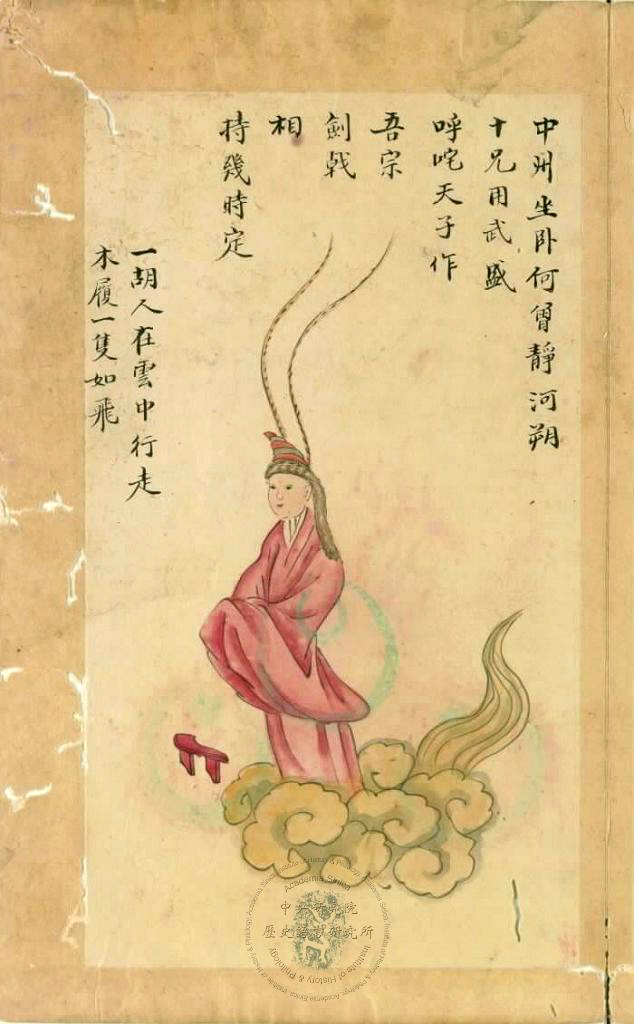 中州坐卧何曾靜河朔
十兄用武盛
呼咤天子作
吾宗
劍戟
相
持幾時定
一胡人在雲中行走
木履一隻如飛
Academia Sinica
中央研究院
歷史語言研究所
Institute of History & Philology